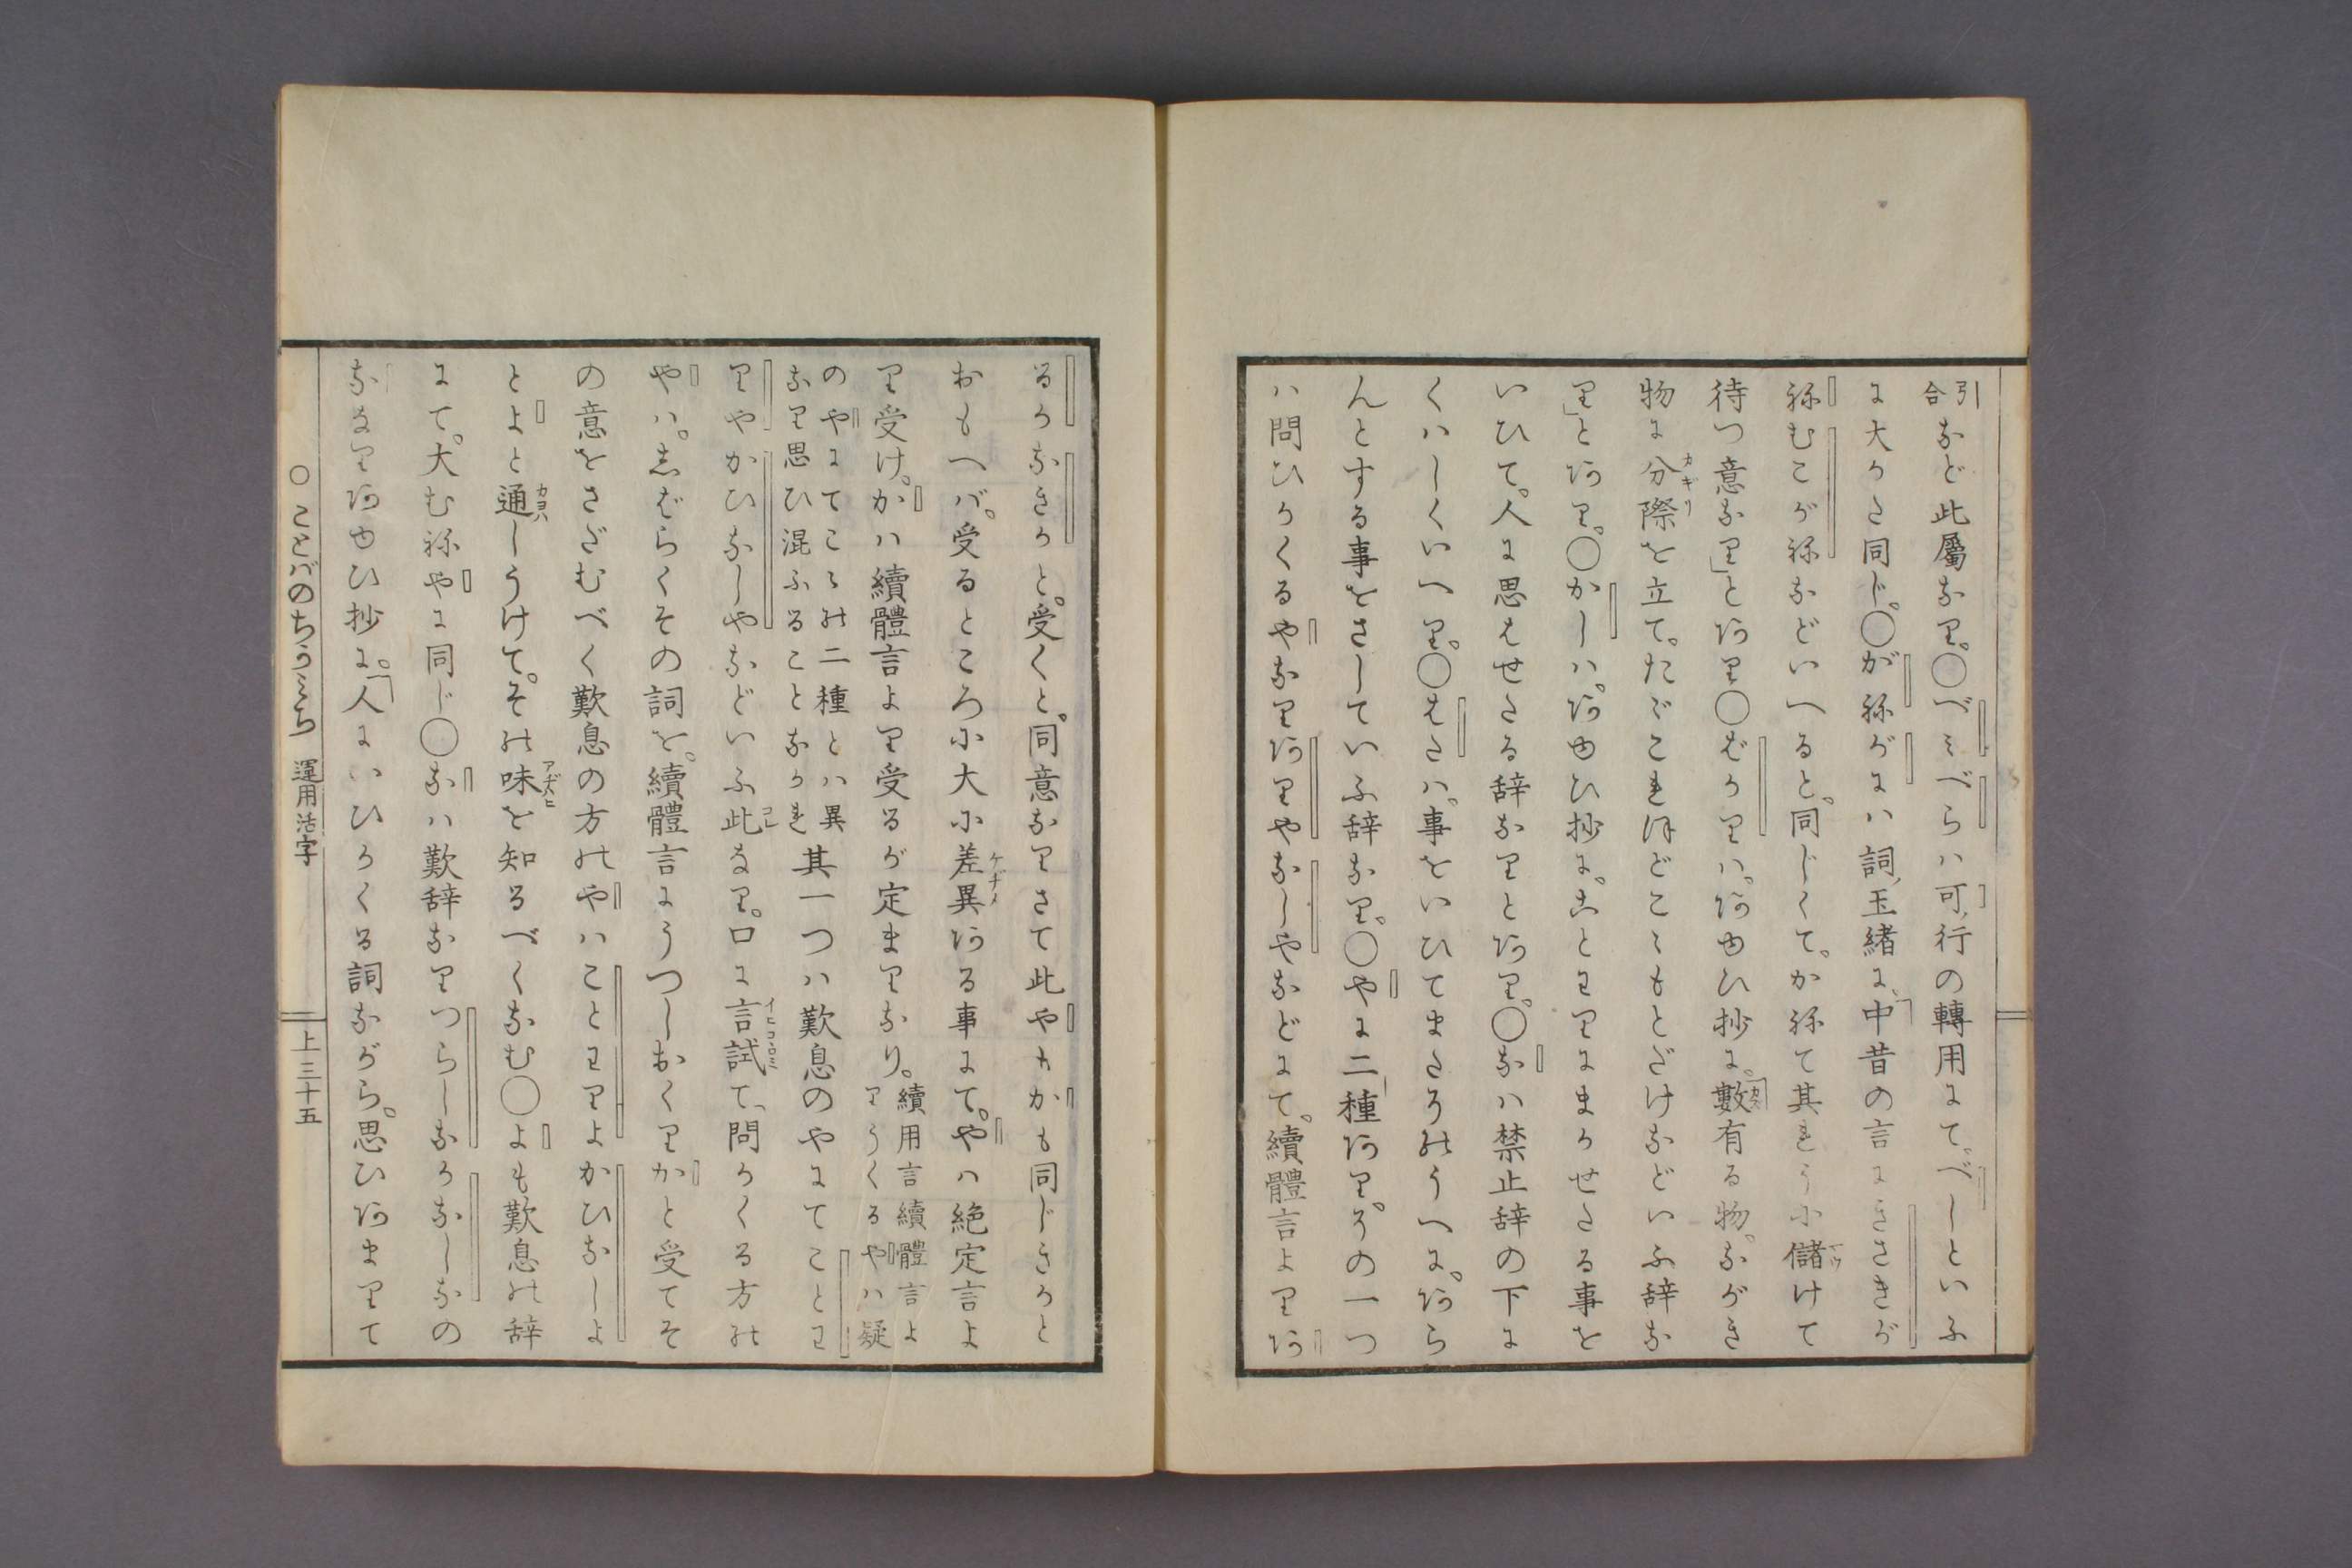 引合など此屬なり。○べみべらハ可、行の轉用にて。べしといふ
に大かた同じ。○がねがにハ詞、玉緒に、「中昔の言にきさきが
ねむこがねなどいへると。同じくて。かねて其れう小儲けて
待つ意なり」とあり○ばかりハ。あゆひ抄に。「數有る物。ながき
物に分際を立て。たゞこれほどこゝもとだけなどいふ辞な
り」とあり。○かしハ。あゆひ抄に。ことわりにまかせたる事を
いひて。人に思はせたる辞なりとあり。○なハ禁止辞の下に
くハしくいへり。○はたハ。事をいひてまたそのうへに。あら
んとする事をさしていふ辞なり。○やに二種あり。その一つ
ハ問ひかくるやなりありやなしやなどにて。續體言よりあ
るかなきかと。受くと。同意なりさて此やもかも同じきかと
おもへバ。受るところ小大小差異ある事にて。やハ絶定言よ
り受け。かハ續體言より受るが定まりなり。續用言續體言よりうくるやハ疑
のやにてこゝの二種とハ異なり思ひ混ふることなかれ其一つハ歎息のやにてことわ
りやかひなしやなどいふ此なり。口に言試て、問かくる方の
やハ。しばらくその詞を。續體言にうつしおくりかと受てそ
の意をさだむべく歎息の方のやハことわりよかひなしよ
とよと通しうけて。その味を知るべくなむ○よも歎息の辞
にて。大むねやに同じ○なハ歎辞なりつらしなかなしなの
ななりあゆひ抄に。「人にいひかくる詞ながら。思ひあまりて
○ことばのちかみち 運用活字 上三十五